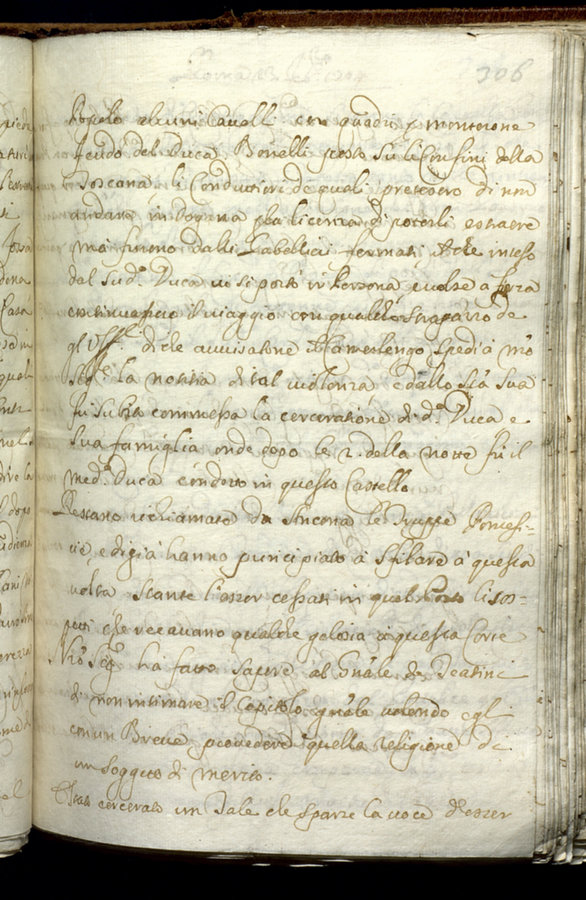 306
alcuni Cavalli con quadri p montorone
feudo del Duca Bonelli posto su li Confini della
Toscana, li Conduttieri de quali pretesero di non
andare in Dogana p la licenza di poterli estraere
mà furono dalli Gabellieri fermati, il che inteso
dal sud.º Duca vi si portò in Persona, e volse à forza
continuassero il viaggio con qualche strapazzo de
gl'Uff.li di che avvisatone il Camerlengo spedì à N'ro
Sig.re la notitia di tal violenza, e dallo Sta Sua
fù subito commessa la carceratione di d.º Duca e
sua famiglia onde dopo le 2. della notte fù il
med.º Duca condotto in questo Castello
Restano richiamate da Ancona le Truppe Pontefi-
cie, e di già hanno principiato à sfilare à questa
volta stante l'esser cessati in quel Porto li sos-
petti che recavano qualche gelosia à questa Corte
N'ro Sig.re hà fatto sapere al Gn'ale de Teatini
di non intimare il Capitolo gn'ale volendo egli
con un Breve provedere quella religione di
un soggetto di merito.
È stato carcerato un Tale che sparse la voce d'esser